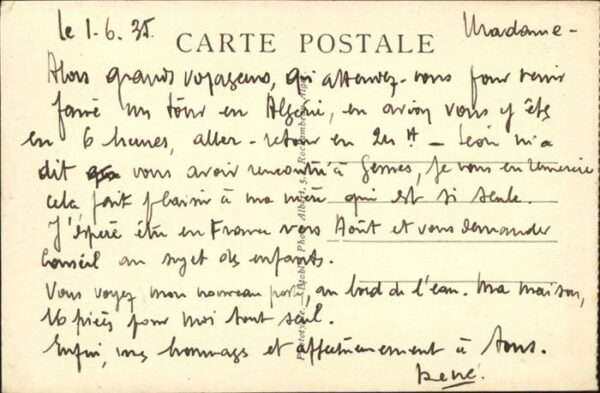 le 1-6.35.
Madame -
CARTE POSTALE
Alors grands voyageurs, qui attendez-vous pour venir
faire un tour en Algérie, en avion vous y êtes
en 6 heures, aller-retour en 2es H - Léon m'a
dit vous avoir rencontré à Gennes, je vous en remercie
cela fait plaisir à ma mère qui est si seule.
J'espère être en France vers Août et vous demander
Conseil au sujet des enfants.
Vous voyez mon nouveau port, au bord de l'eau. Ma maison,
16 pièces pour moi tout seul.
Enfin, mes hommages et affectueusement à tous.
René.
Photo Albert, 5,